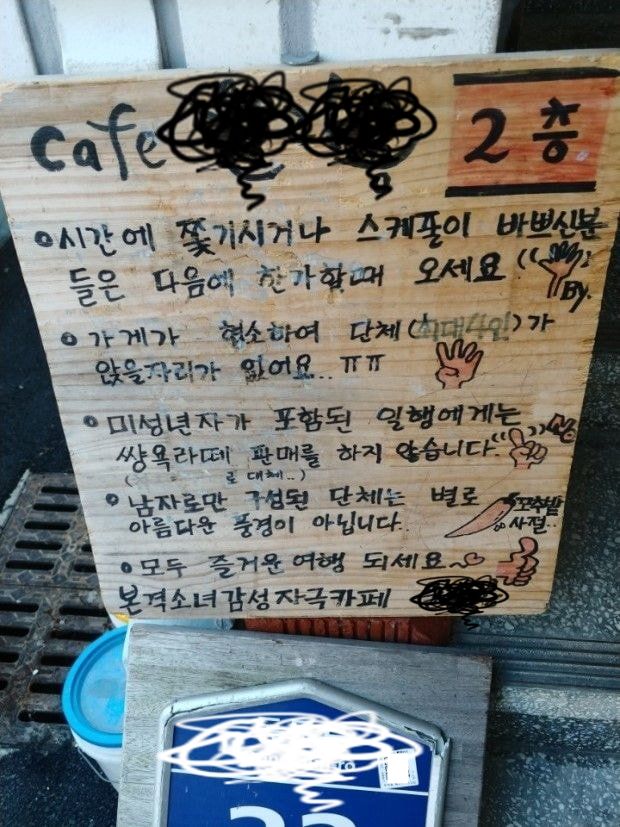 cafe
2층
시간에 쫓기시거나 스케쥴이 바쁘신분
들은 다음에 한가할때 오세요
By.
가게가 협소하여 단체(최대4인)가
앉을자리가 없어요.. ㅠㅠ
미성년자가 포함된 일행에게는
쌍욕라떼 판매를 하지 않습니다.
( 로 대체..)
남자로만 구성된 단체는 별로 고추밭
아름다운 풍경이 아닙니다.. 사절..
모두 즐거운 여행 되세요~
본격소녀감성자극카페